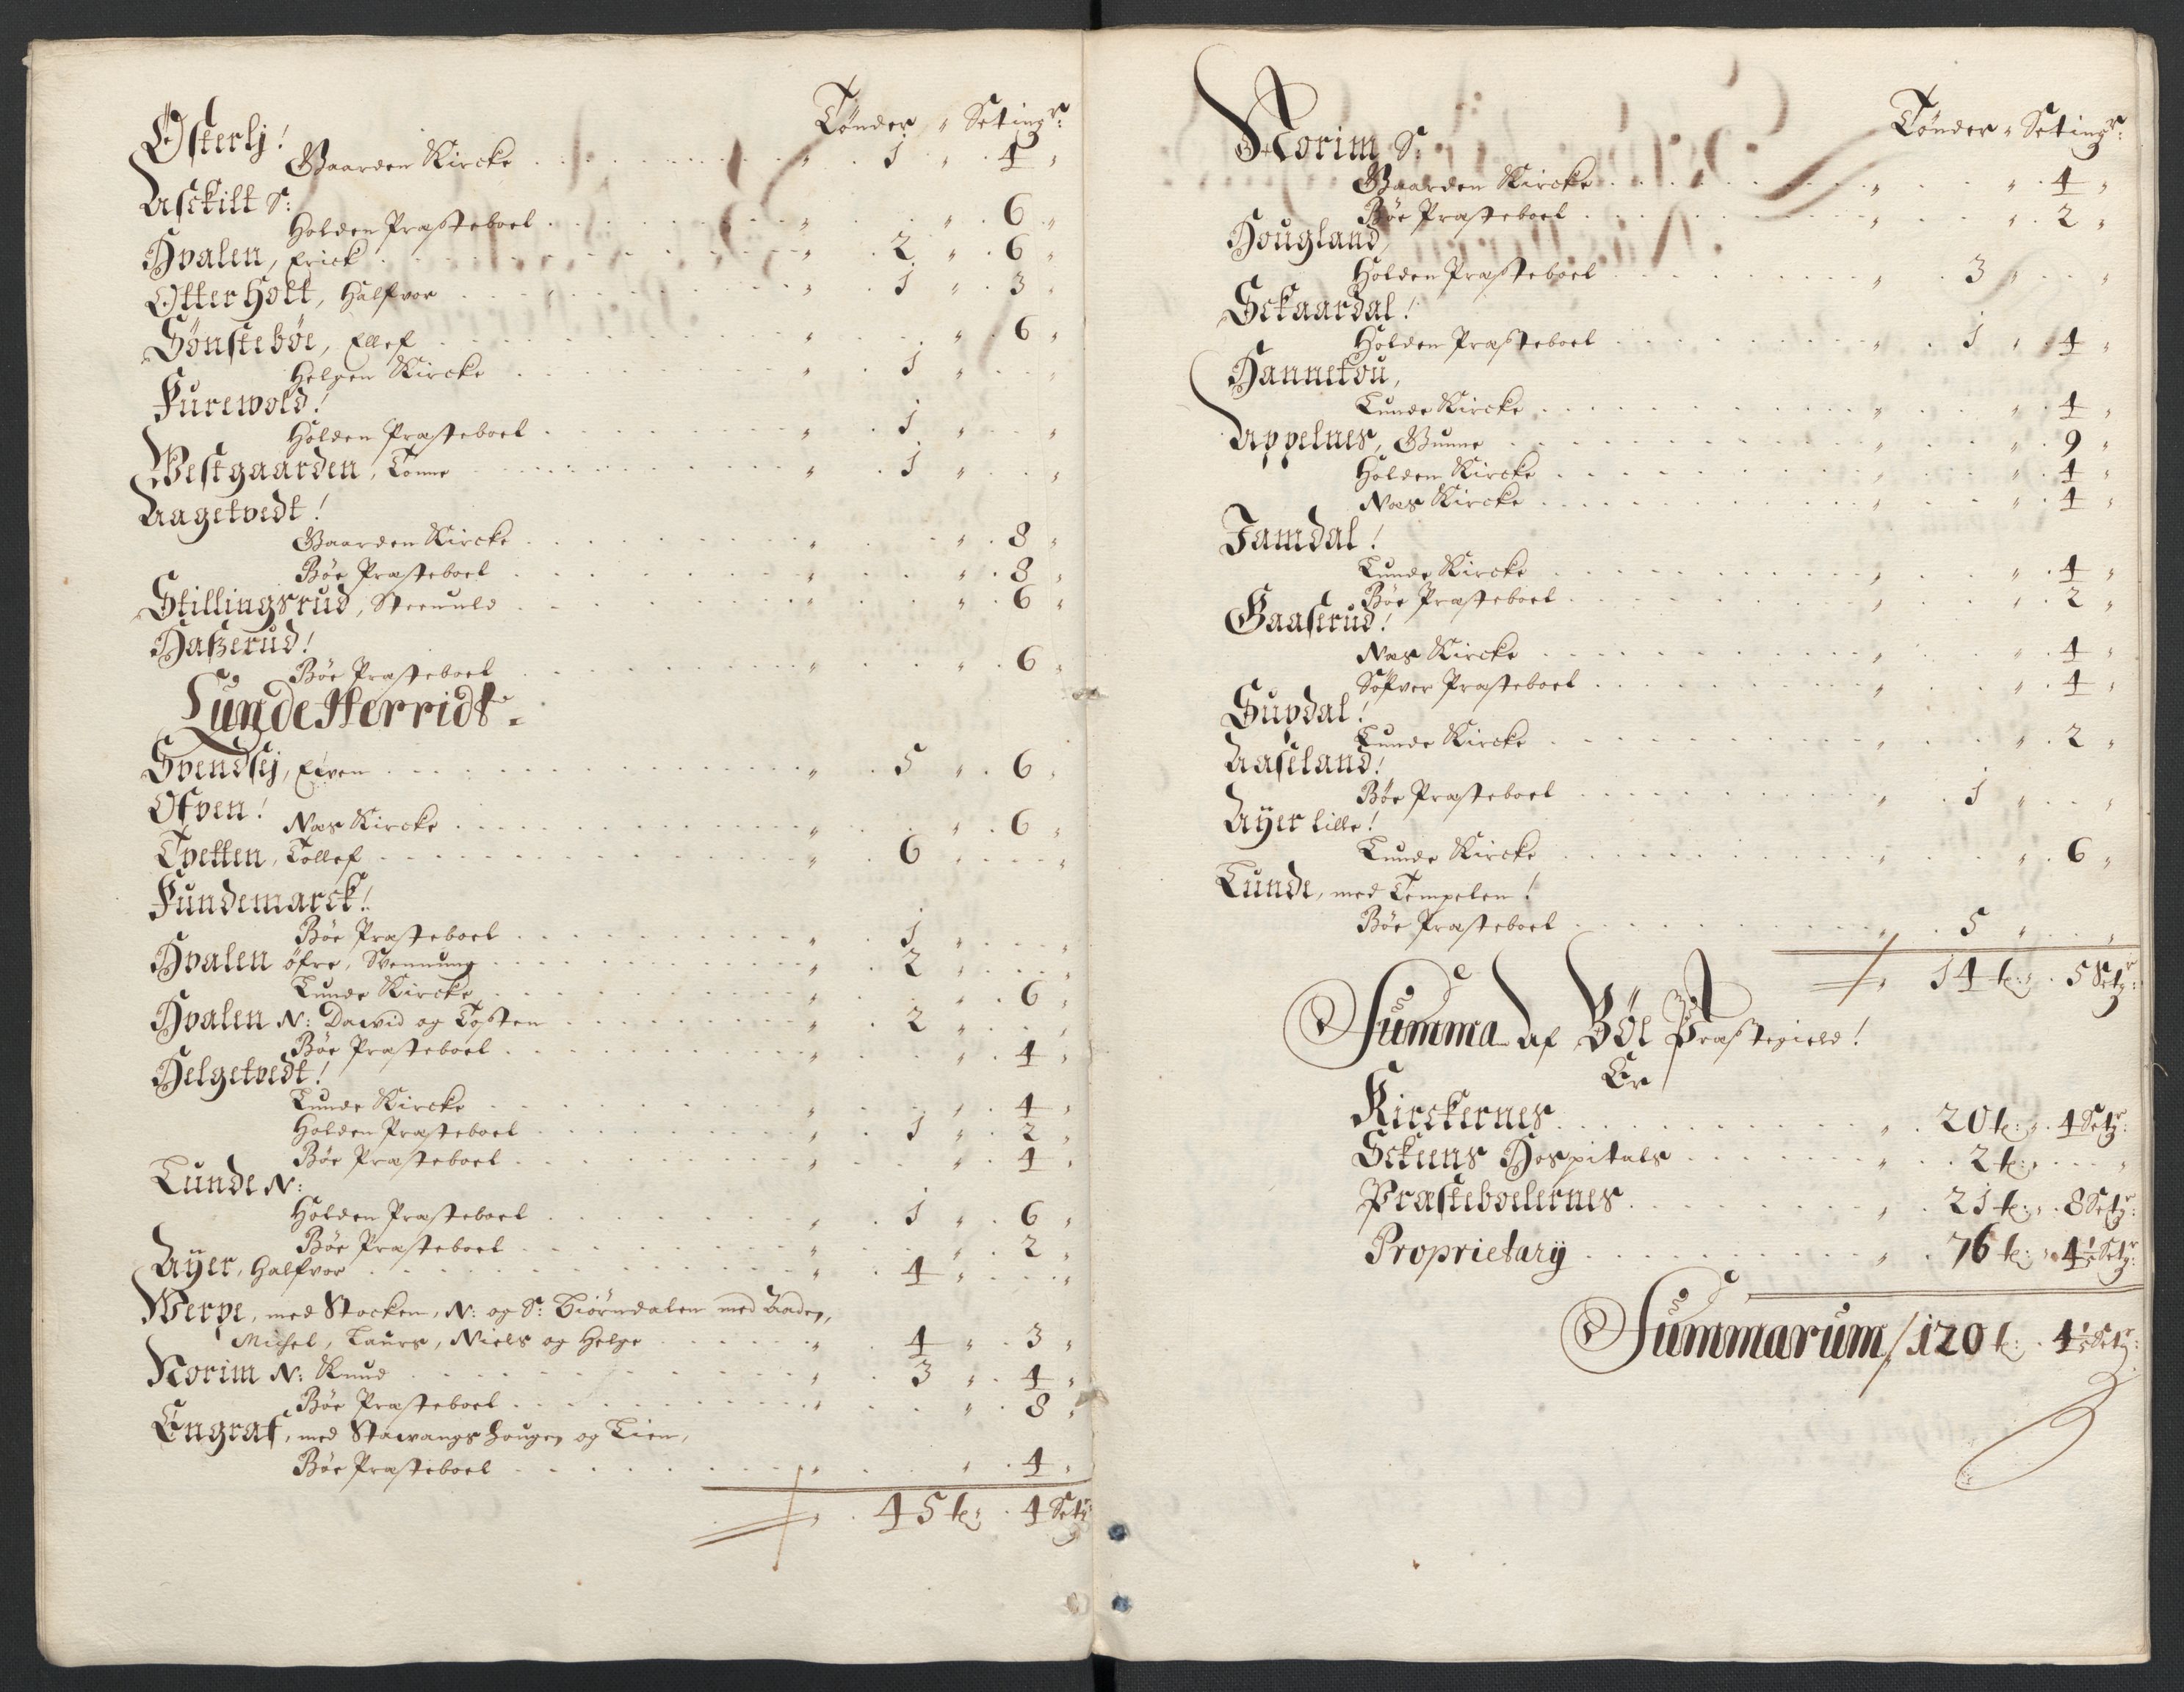 Tønder „ Setingr:
Østerlj!
Gaarden Kircke . . . „ . 1 „ . 4 „
Asckilt S:
Holden Præsteboel . . . „ . . „ . 6 „
Hvalen, Erick . . . „ . 2 „ . 6 „
Otterholt, Halfvor . . . „ . 1 „ . 3 „
Sönstebøe, Ellef . . . „ . . „ . 6 „
Helgen Kircke . . . „ . 1 „ . . „
Furewold!
Holden Præsteboel . . . „ . 1 „ . . „
Westgaarden, Tonne . . . „ . 1 „ . . „
Aagetvedt!
Gaarden Kircke . . . „ . . „ . 8 „
Böe Præsteboel . . . „ . . „ . 8 „
Stillingsrud, Steenuld . . . „ . . „ . 6 „
Haßerud!
Böe Præsteboel . . . „ . . „ . 6 „
Lunde Herridt
Svendsej, Even . . . „ . 5 „ . 6 „
Ofven!
Næs Kircke . . . „ . . „ . 6 „
Tvetten, Tollef . . . „ . 6 „ . . „
Fundemarck!
Böe Præsteboel . . . „ . 1 „ . . „
Hvalen øfre, Svennung . . . „ . 2 „ . . „
Lunde Kircke . . . „ . . „ . 6 „
Hvalen N: David og Tosten . . . „ . 2 „ . . „
Böe Præsteboel . . . „ . . „ . 4 „
Helgetvedt!
Lunde Kircke . . . „ . . „ . 4 „
Holden Præsteboel . . . „ . 1 „ . 2 „
Böe Præsteboel . . . „ . . „ . 4 „
Lunde N:
Holden Præsteboel . . . „ . 1 „ . 6 „
Böe Præsteboel . . . „ . . „ . 2 „
Aÿer, Halfvor . . . „ . 4 „ . . „
Werpe, med Stocken, N: og S: Biörndalen med Bades,
Michel, Laurs, Niels og Helge . . . „ . 4 „ . 3 „
Norim N: Knud . . . „ . 3 „ . 4 „
Böe Præsteboel . . . „ . . „ . 8 „
Engraf, med Stavangs Hougen og Lien,
Böe Præsteboel . . . „ . . „ . 4 „
„ . 45 t: . 4 Setr
Tønder „ Setingr:
Norim S:
Gaarden Kircke . . . „ . . „ . 4 „
Böe Præsteboel . . . „ . . „ . 2 „
Hougland,
Holden Præsteboel . . . „ . 3 „ . . „
Sckaardal!
Holden Præsteboel . . . „ . 1 „ . 4 „
Hannetvu,
Lunde Kircke . . . „ . . „ . 4 „
Appelnes, Gunne . . . „ . . „ . 9 „
Holden Kircke . . . „ . . „ . 4 „
Næs Kircke . . . „ . . „ . 4 „
Jamdal!
Lunde Kircke . . . „ . . „ . 4 „
Böe Præsteboel . . . „ . . „ . 2 „
Gaaserud!
Næs Kircke . . . „ . . „ . 4 „
Söfver Præsteboel . . . „ . . „ . 4 „
Supdal!
Lunde Kircke . . . „ . . „ . 2 „
Aaseland!
Böe Præsteboel . . . „ . 1 „ . . „
Aÿer lille!
Lunde Kircke . . . „ . . „ . 6 „
Lunde, med Tempelen!
Böe Præsteboel . . . „ . 5 „ . . „
„ . 14 t: . 5 Setr:
Summa af Böe Præstegield!
Er
Kirckernes . . . „ . 20 t: „ . 4 Setr:
Sckeens Hospitals . . . „ . 2 t: „ . . „
Præsteboelernes . . . „ . 21 t: „ . 8 Setr:
Proprietarij . . . „ . 76 t: „ 4½ Setr:
Summarum / 120 t: . 4½ Setr: